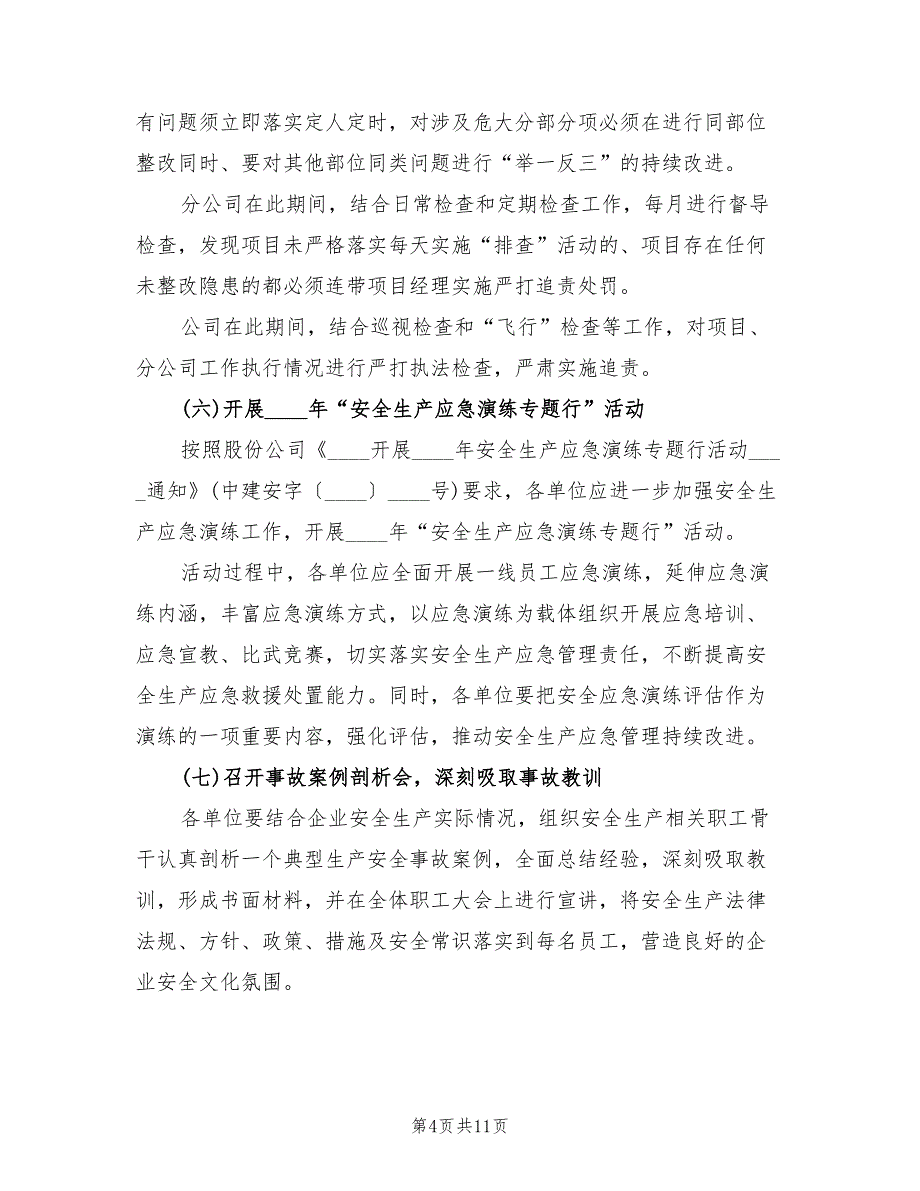 有问题须立即落实定人定时，对涉及危大分部分项必须在进行同部位
整改同时、要对其他部位同类问题进行“举一反三”的持续改进。
分公司在此期间，结合日常检查和定期检查工作，每月进行督导
检查，发现项目未严格落实每天实施“排查”活动的、项目存在任何
未整改隐患的都必须连带项目经理实施严打追责处罚。
公司在此期间，结合巡视检查和“飞行”检查等工作，对项目、
分公司工作执行情况进行严打执法检查，严肃实施追责。
(六)开展____年“安全生产应急演练专题行”活动
按照股份公司《____开展____年安全生产应急演练专题行活动___
_通知》(中建安字〔____〕____号)要求，各单位应进一步加强安全生
产应急演练工作，开展____年“安全生产应急演练专题行”活动。
活动过程中，各单位应全面开展一线员工应急演练，延伸应急演
练内涵，丰富应急演练方式，以应急演练为载体组织开展应急培训、
应急宣教、比武竞赛，切实落实安全生产应急管理责任，不断提高安
全生产应急救援处置能力。同时，各单位要把安全应急演练评估作为
演练的一项重要内容，强化评估，推动安全生产应急管理持续改进。
(七)召开事故案例剖析会，深刻吸取事故教训
各单位要结合企业安全生产实际情况，组织安全生产相关职工骨
干认真剖析一个典型生产安全事故案例，全面总结经验，深刻吸取教
训，形成书面材料，并在全体职工大会上进行宣讲，将安全生产法律
法规、方针、政策、措施及安全常识落实到每名员工，营造良好的企
业安全文化氛围。
第4页共11页